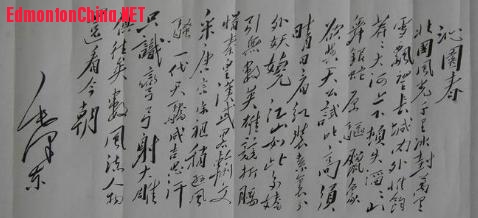 EdmontonChina.NET
沁园春
北国风光千里冰封万里
雪飘望长城内外惟馀
莽莽大河上下顿失滔滔山
舞银蛇原驱腊象
欲与天公试比高须
晴日看红装素裹分
外妖娆江山如此多娇
引无数英雄竞折腰
惜秦皇汉武略输文
采唐宗宋祖稍逊风
骚一代天骄成吉思汗
只识弯弓射大雕
俱往矣数风流人物
还看今朝
毛泽东